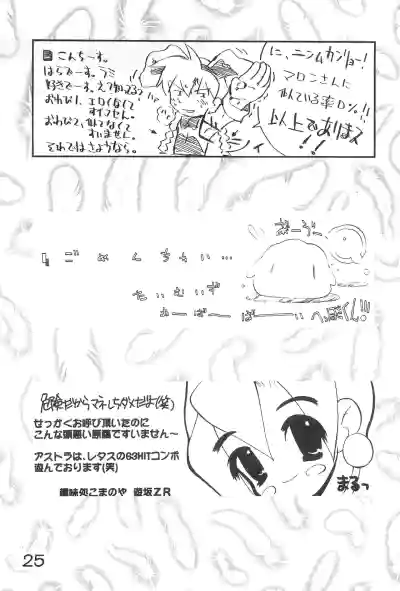 こんちーす。
はらでーす。ラミ
好きでーす。
おわび1、エロくなくて
すいません。
おわび2、似てなくて
すいません。
それではさようなら。
に、ニンムカンリョー!
マロンさんに
似ている率0%!!
以上でありまス
!!
ごめんちょい…
たいむいず
おーばーばーい
へっぽくん!!!
危険だからマネしちゃダメだよ(笑)
せっかくお呼び頂いたのに
こんな頭悪い原稿ですいません〜
アストラは、レタスの63HITコンボ
遊んでおります(笑)
趣味処こまのや 遊坂ZR
まるっ
25